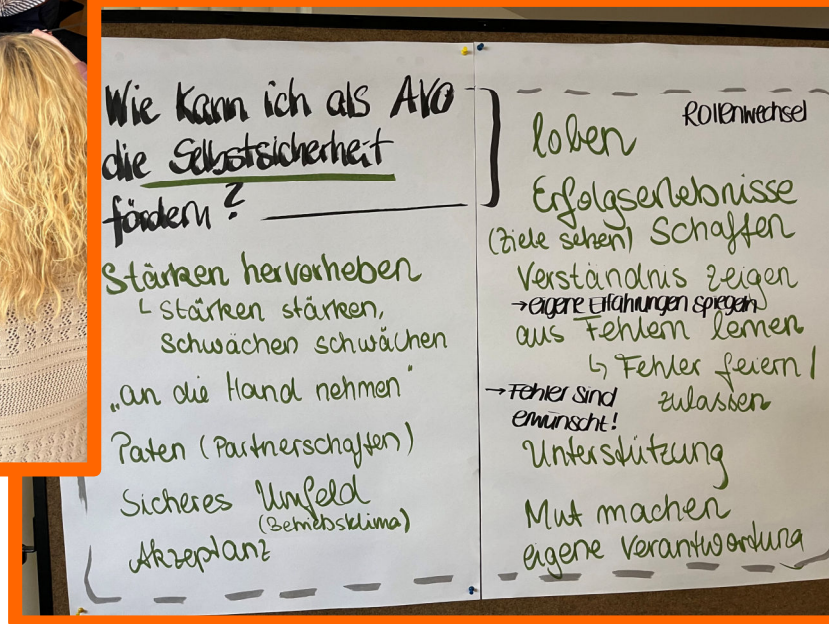 Wie kann ich als AVO
die Selbstsicherheit
fördern?
Stärken hervorheben
↳ Stärken stärken,
Schwächen schwächen
„an die Hand nehmen"
Paten (Partnerschaften)
Sicheres Umfeld
(Betriebsklima)
Akzeptanz
Rollenwechsel
loben
Erfolgserlebnisse
(Ziele setzen) schaffen
Verständnis zeigen
→eigene Erfahrungen spiegeln
aus Fehlern lernen
↳ Fehler feiern/
zulassen
→Fehler sind
erwünscht!
Unterstützung
Mut machen
eigene Verantwortung